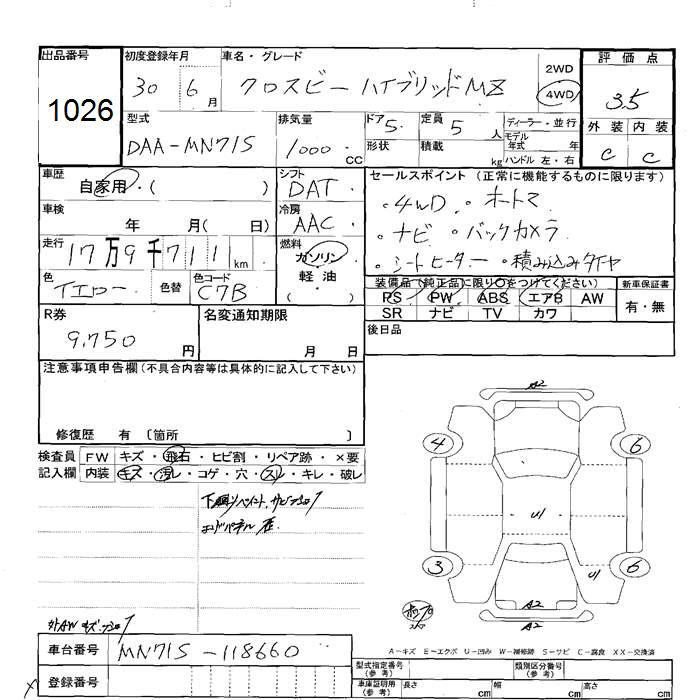 出品番号
1026
初度登録年月
30 6 月
車名・グレード
クロスビー ハイブリッドMZ
2WD
4WD
評価点
3.5
型式
DAA-MN71S
排気量
1000 CC
ドア 5
形状
定員 5 人
積載 kg
ディーラー・並行
モデル年式 年
ハンドル 左・右
外装 内装
C C
車歴
自家用・( )
シフト
DAT
車検 年 月( 日)
冷房
AAC
走行
17万9千711 km
燃料
ガソリン・
軽油・
( )
色
イエロー
色替
色コード
C7B
セールスポイント (正常に機能するものに限ります)
・4WD ・オートマ
・ナビ ・バックカメラ
・シートヒーター ・積み込みタイヤ
装備品で(純正品に限り○をつけてください)
PS PW ABS エアB AW
SR ナビ TV カワ
新車保証書
有・無
R券
9,750 円
名変通知期限
月 日
後日品
注意事項申告欄(不具合内容等は具体的に記入して下さい)
修復歴 有 〔箇所 〕
検査員記入欄
FW キズ・飛石・ヒビ割・リペア跡・×要
内装 キズ・汚レ・コゲ・穴・スレ・キレ・破レ
A2
4 6
U1
3 6
U1
A2
A-キズ E-エクボ U-凹み W-補修跡 S-サビ C-腐食 XX-交換済
車台番号
MN71S-118660
登録番号
型式指定番号(参考)
類別区分番号(参考)
車庫証明用(参考) 長さ cm 幅 cm 高さ cm